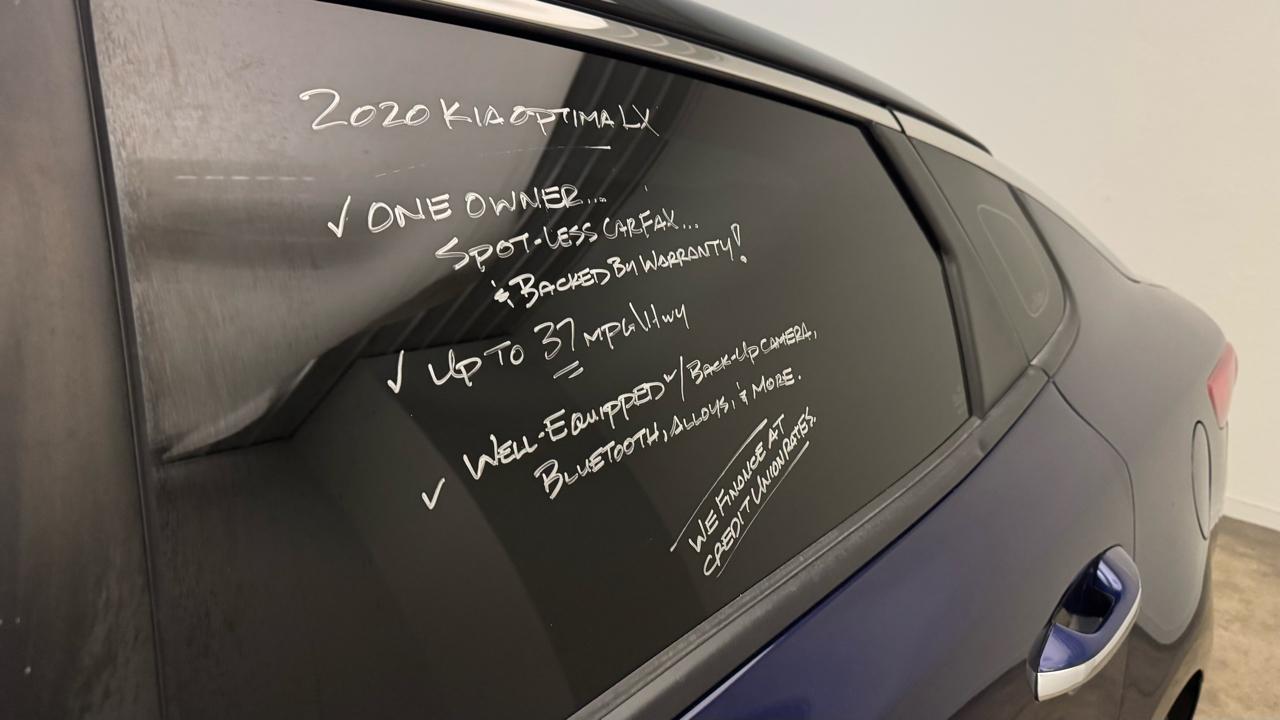 2020 KIA OPTIMA LX
✓ ONE OWNER...
SPOT-LESS CARFAX...
& BACKED BY WARRANTY!
✓ UP TO 37 MPG\HWY
✓ WELL-EQUIPPED W/BACK-UP CAMERA,
BLUETOOTH, ALLOYS, & MORE.
WE FINANCE AT
CREDIT UNION RATES.